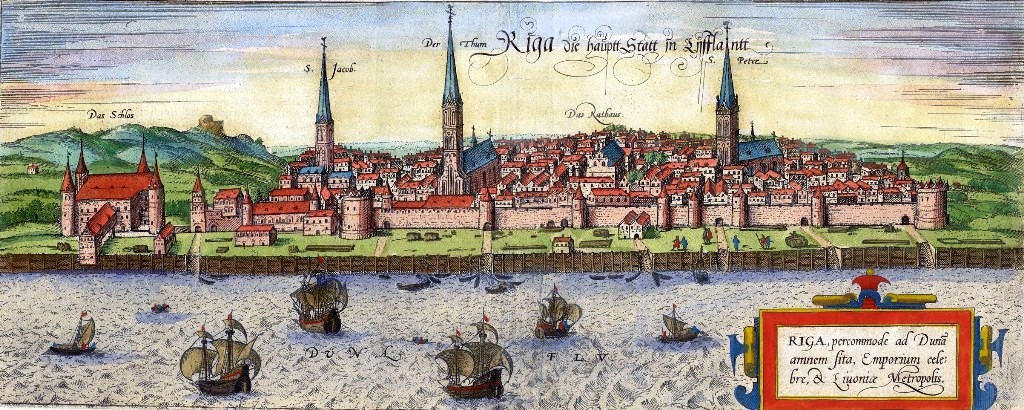 Riga die hauptt Statt in Lyfflantt
Der Thum
S. Jacob.
S. Peter
Das Schlos
Das Rathaus.
DUNA FLV
RIGA, percommode ad Dunã
amnem sita, Emporium cele:
bre, & Liuoniæ Metropolis.